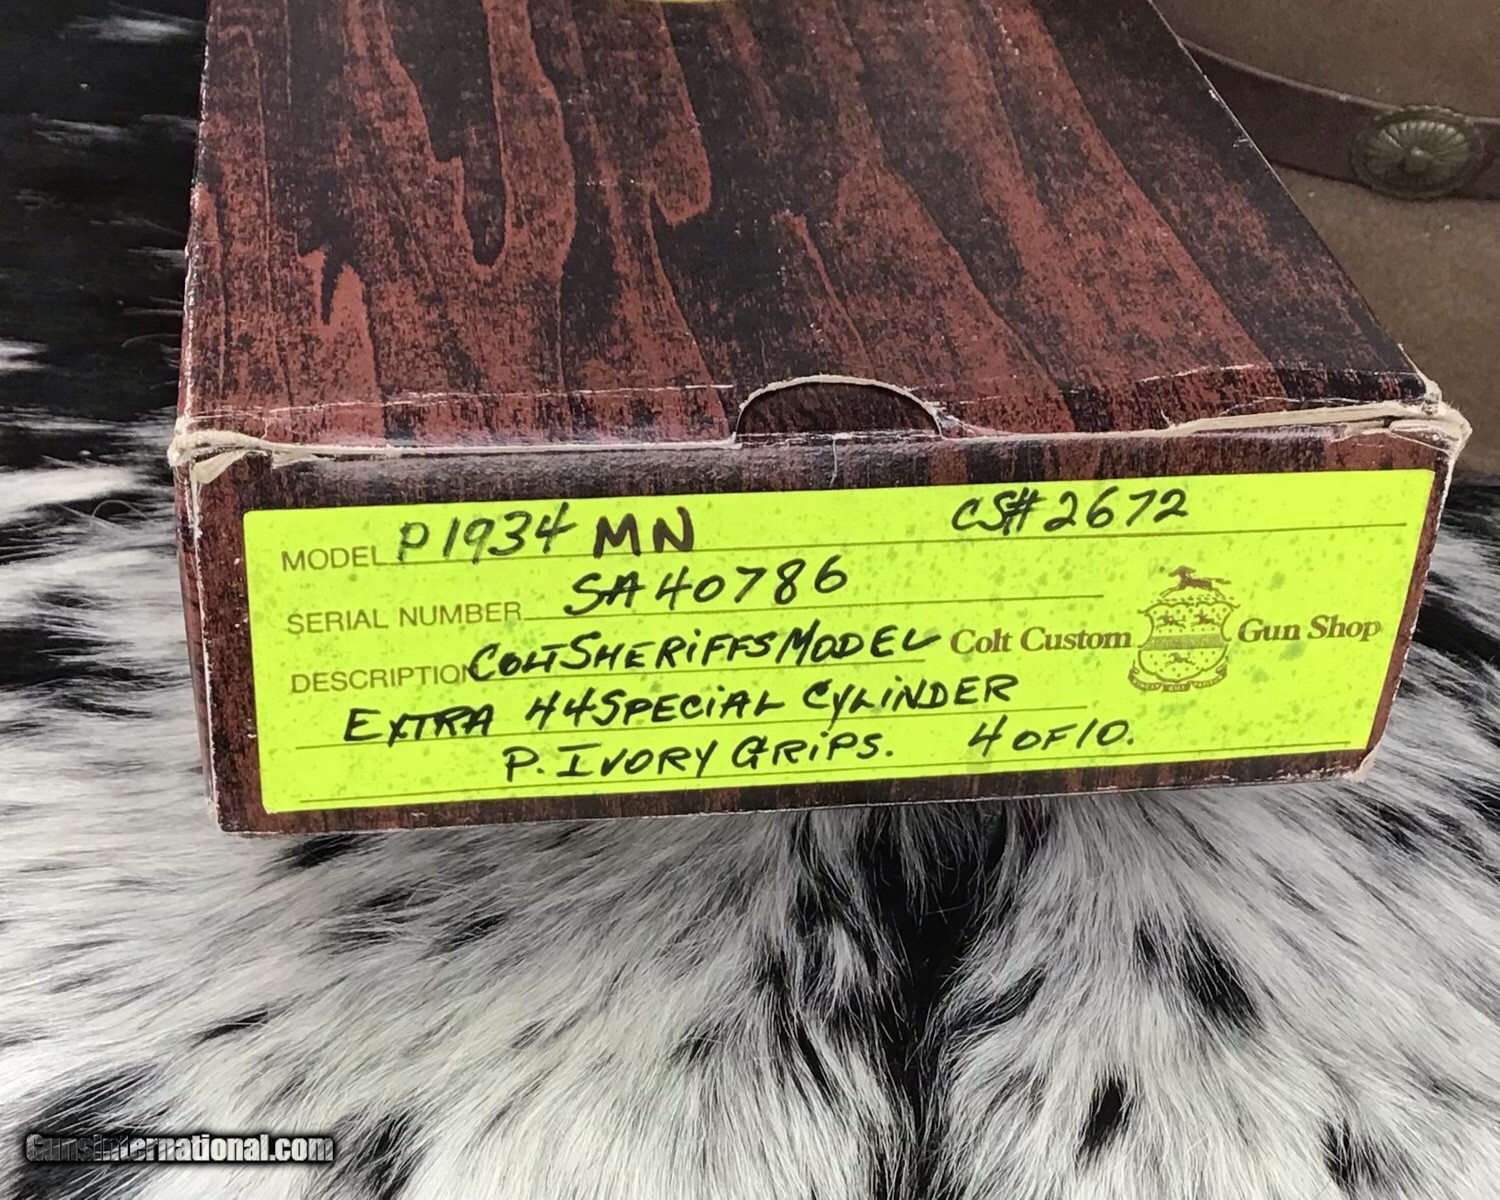 MODEL P1934 MN CS# 2672
SERIAL NUMBER SA40786
DESCRIPTION COLT SHERIFFS MODEL
Colt Custom Gun Shop
EXTRA 44 SPECIAL CYLINDER
P. IVORY GRIPS. 4 OF 10.
GunsInternational.com